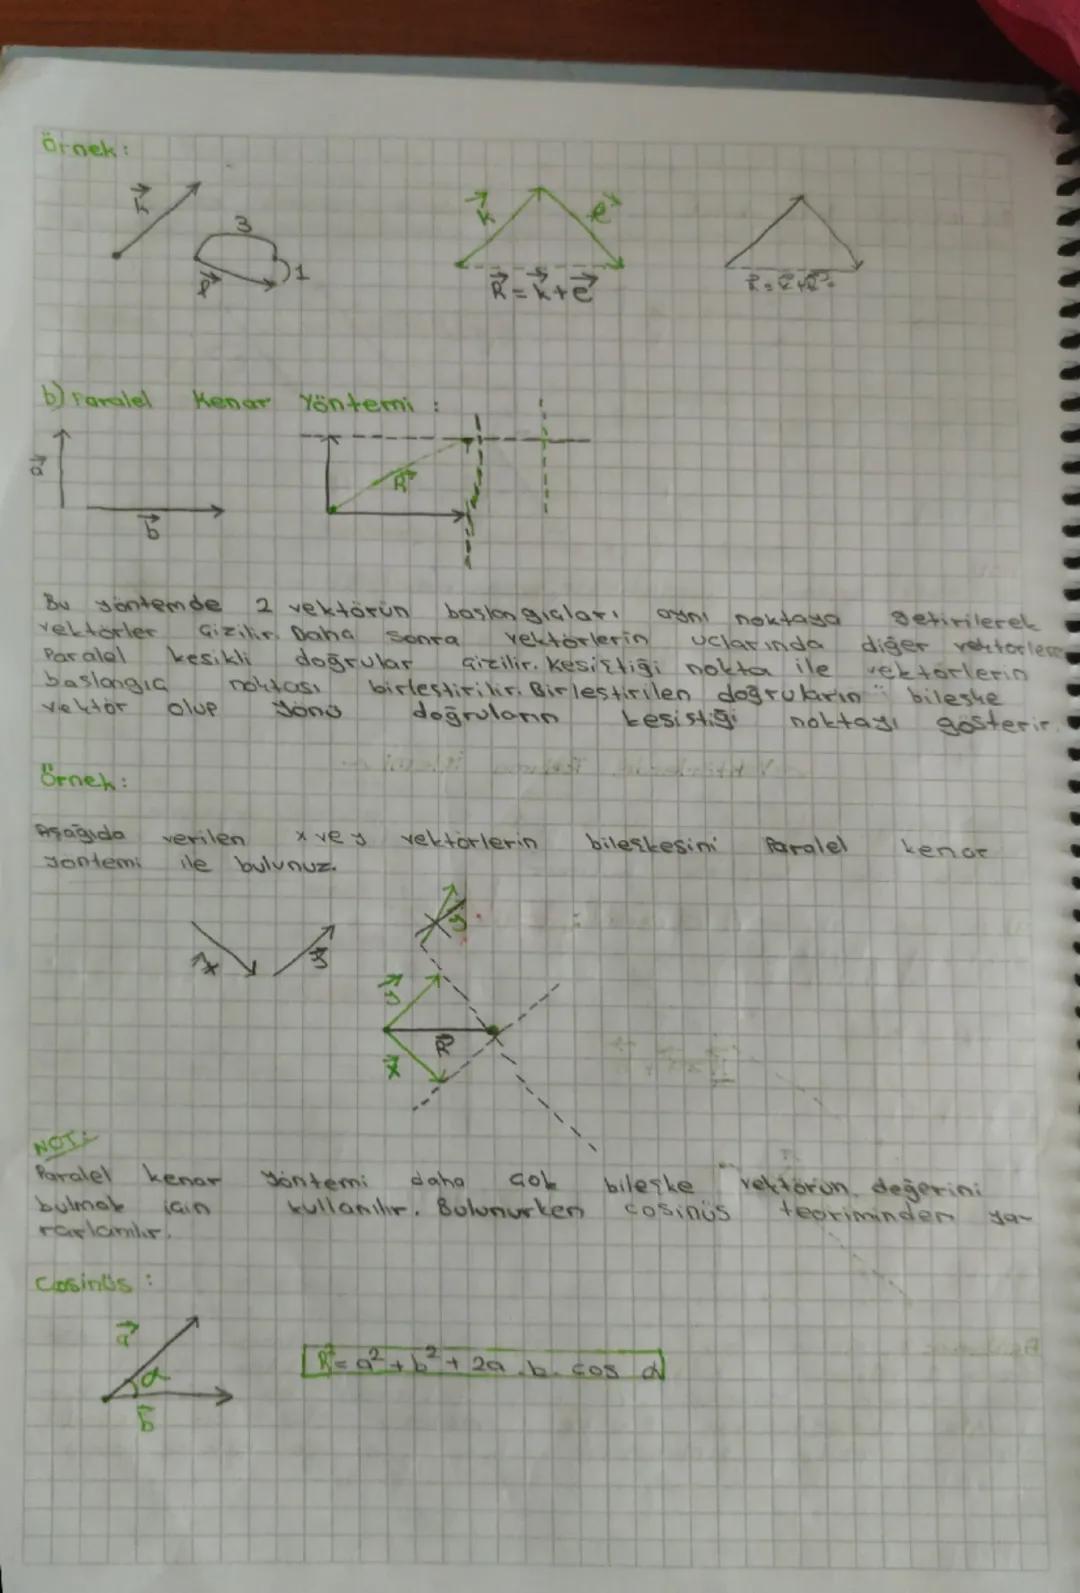 Örnek:
k
3
1
k e
R = k + e
b) Paralel Kenar Yöntemi :
a
R
b
Bu yöntemde 2 vektörün başlangıçları aynı noktaya getirilerek
vektörler çizilir. Daha sonra vektörlerin uclarında diğer vektörlere
Paralel kesikli doğrular çizilir. Kesiştiği nokta ile vektörlerin
baslangıç noktası birleştirilir. Birleştirilen doğruların bileşke
vektör olup yönü doğruların kesistiği noktayı gösterir.
Örnek:
Aşağıda verilen x ve y vektörlerin bileşkesini Paralel kenar
yöntemi ile bulunuz.
y
x y
y
R
x
NOT:
Paralel kenar yöntemi daha çok bileşke vektörün değerini
bulmak için kullanılır. Bulunurken cosinüs teoriminden ya-
rarlanılır.
Cosinüs :
a
α
b
R² = a² + b² + 2a . b . cos α